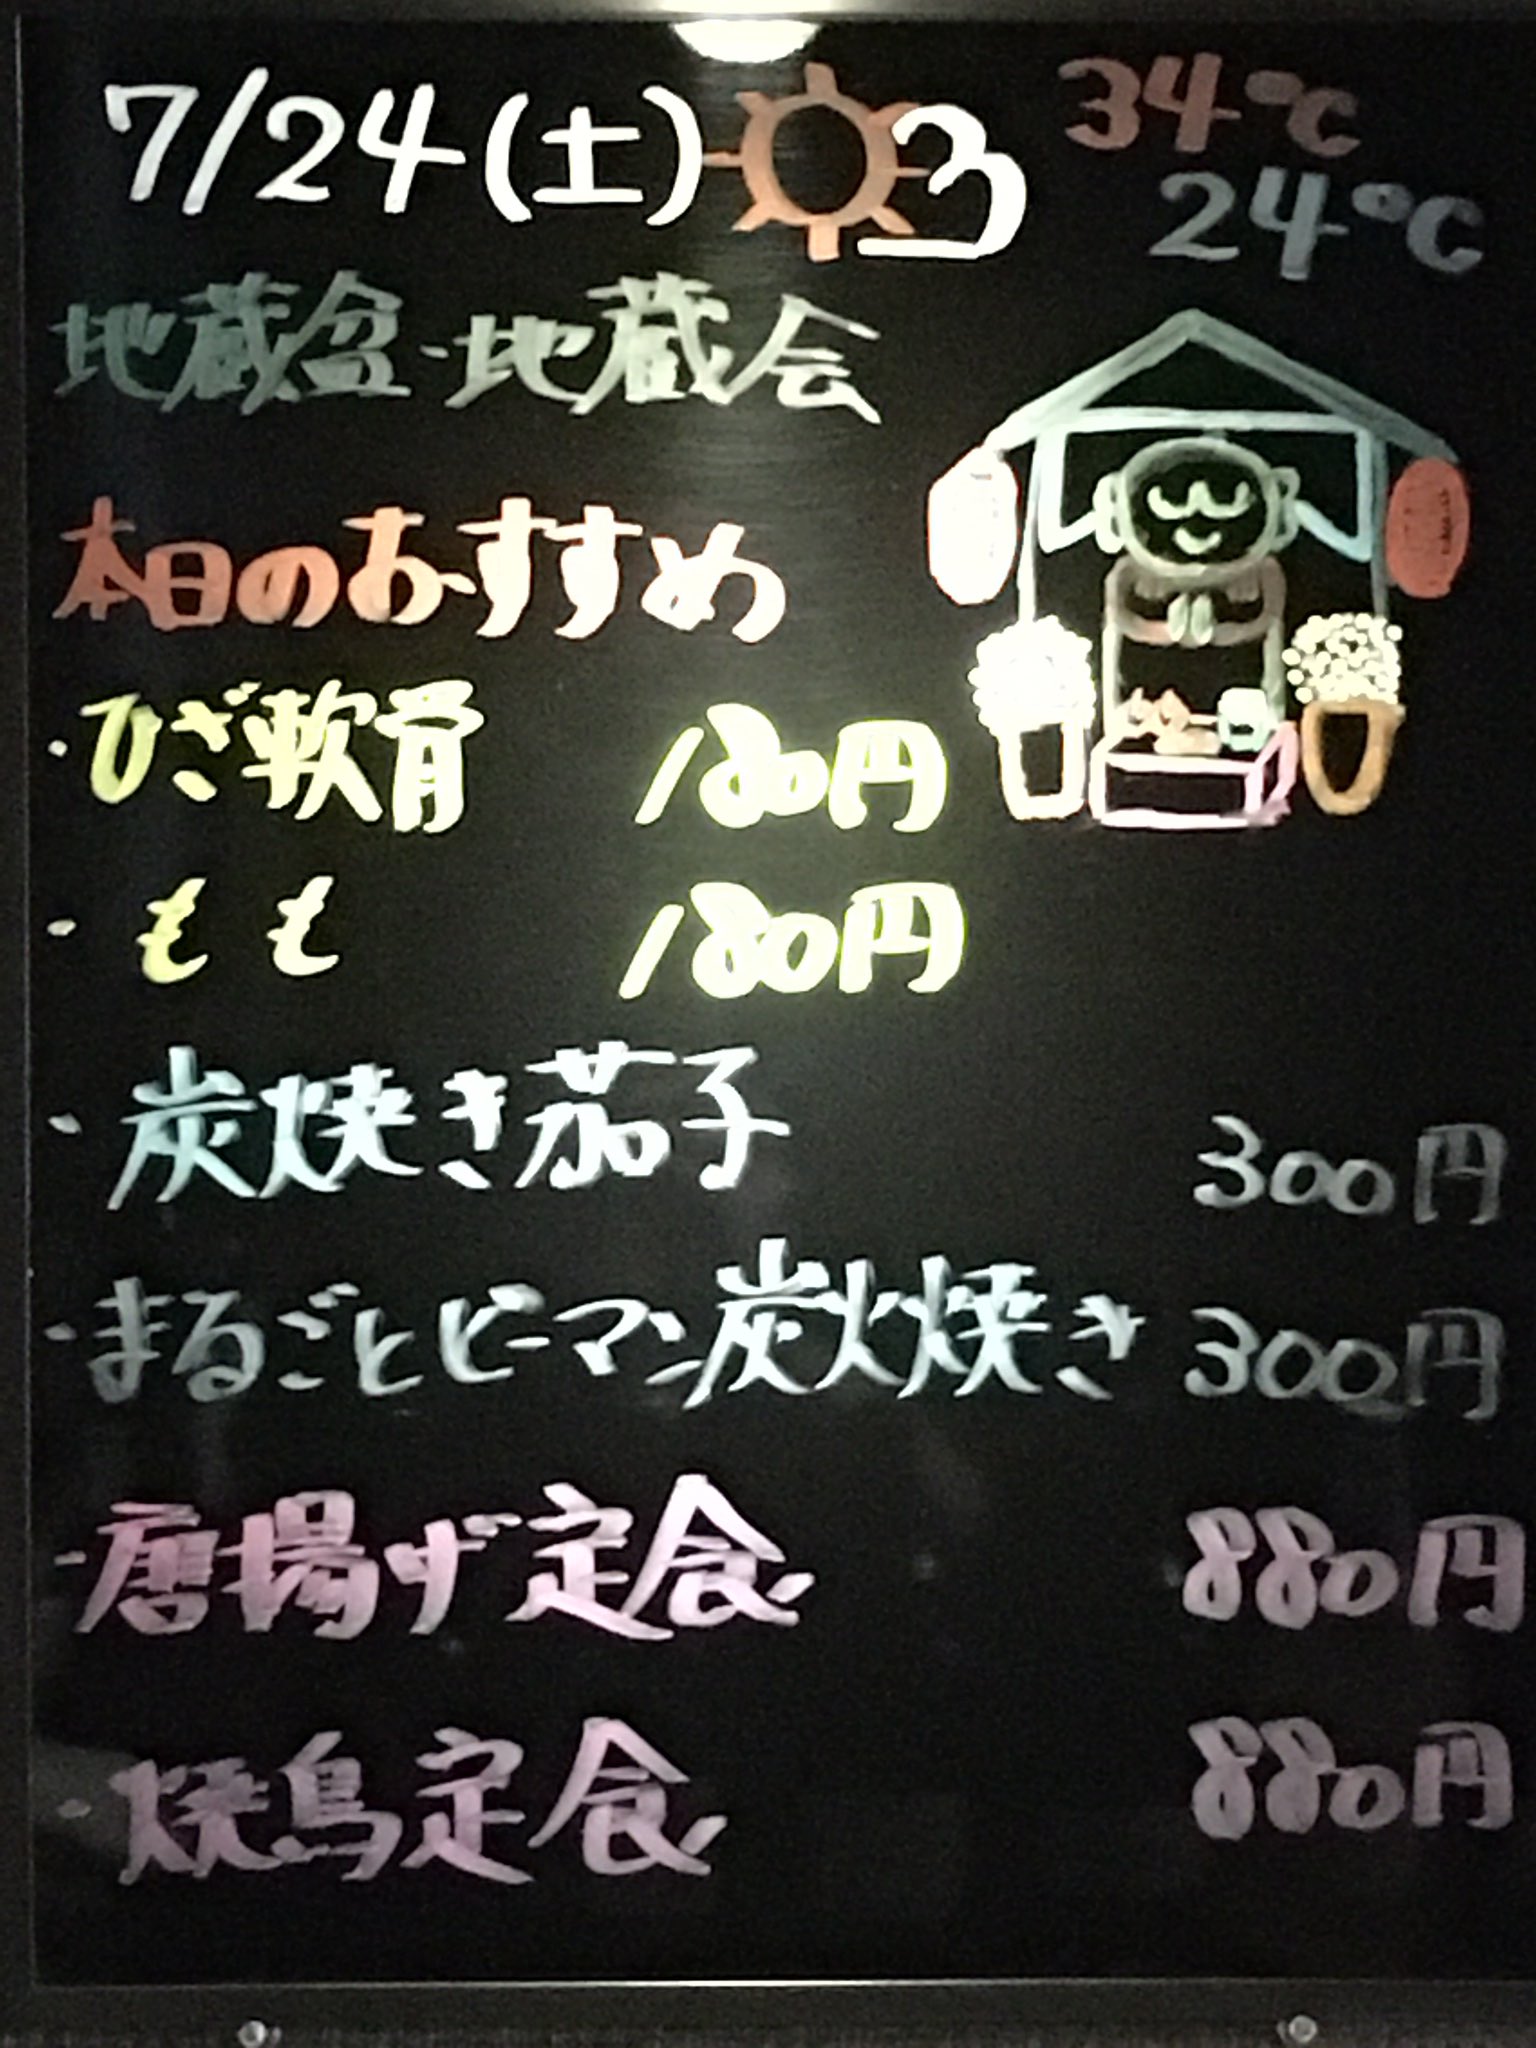 7/24(土) 34℃
24℃
地蔵盆・地蔵会
本日のおすすめ
・ひざ軟骨 180円
・もも 180円
・炭焼き茄子 300円
・まるごとピーマン炭火焼き 300円
・唐揚げ定食 880円
・焼鳥定食 880円